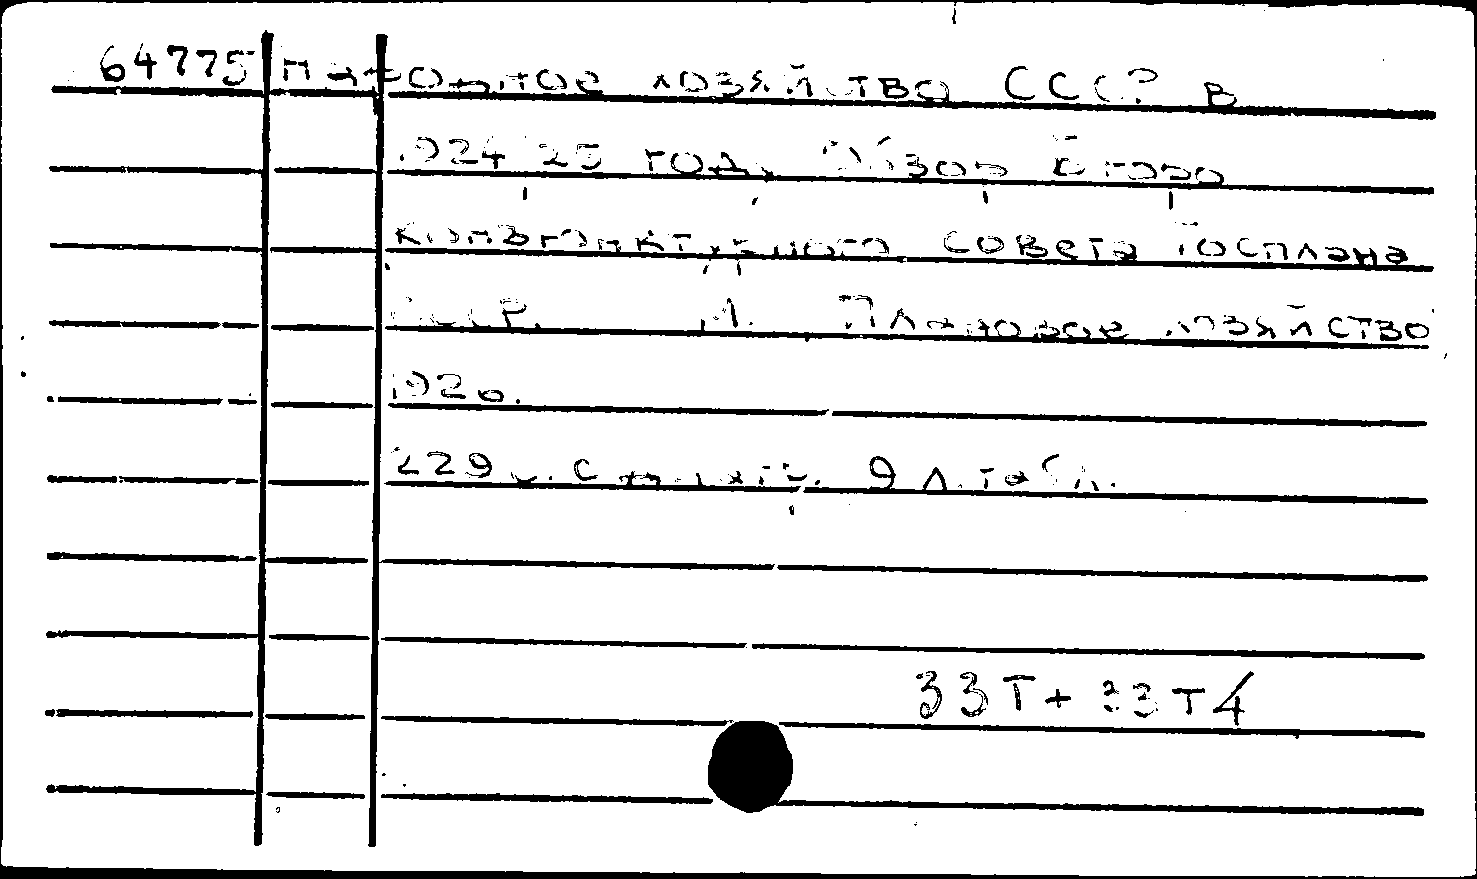 64775 Народное хозяйство СССР в
1924/25 году. Обзор Бюро
конъюнктурного совета Госплана
СССР. М. Плановое хозяйство
1926.
229 с. С 9 л. табл.
33Т + 33Т4